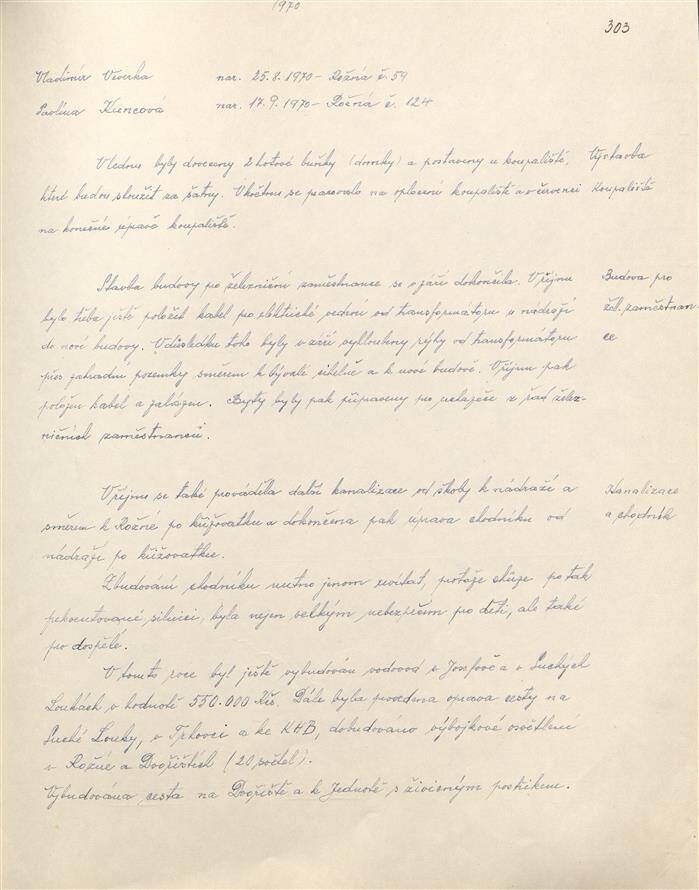 1970
303
Vladimír Věverka nar. 25.8.1970 - Rožná č. 59
Pavlína Kuncová nar. 17.9.1970 - Rožná č. 124
V lednu byly dovezeny 2 hotové buňky (domky) a postaveny u koupaliště, Výstavba
které budou sloužit za šatny. V květnu se pracovalo na oplocení koupaliště a v červenci koupaliště
na konečné úpravě koupaliště.
Stavba budovy po železniční zaměstnance se v září dokončila. V říjnu Budova pro
bylo třeba ještě položit kabel po elektrické vedení od transformátoru u nádraží žel. zaměstnan-
do nové budovy. V důsledku toho byly v září vyhloubeny rýhy od transformátoru ce
přes zahradní pozemky směrem k bývalé cihelně a k nové budově. V říjnu pak
položen kabel a zalážen. Byty byly pak připraveny pro uchazeče z řad želez-
ničních zaměstnanců.
V říjnu se také prováděla další kanalizace od školy k nádraží a Kanalizace
směrem k Rožné po křižovatku a dokončena pak úprava chodníku od a chodník
nádraží po křižovatku.
Zbudování chodníku nutno jenom uvítat, protože chůze po tak
frekventované silnici, byla nejen velkým nebezpečím pro děti, ale také
pro dospělé.
V tomto roce byl ještě vybudován vodovod v Josefově a v Suchých
Loukách v hodnotě 550.000 Kčs. Dále byla provedena oprava cesty na
Suché Louky, v Trhovci a ke KHB, dobudováno výbojkové osvětlení
v Rožné a Dvořištích (20 světel).
Vybudována cesta na Dvořiště a k Jednotě s živičným postřikem.